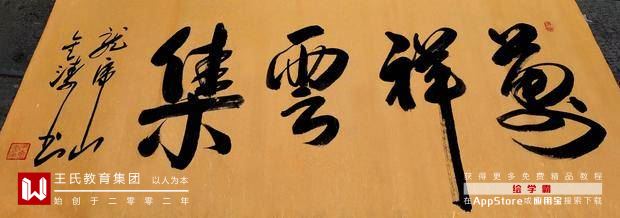 萬祥雲集
龍虎山
书
王氏教育集团 以人为本
始创于二零零二年
获得更多免费精品教程
绘学霸
在AppStore或应用宝搜索下载